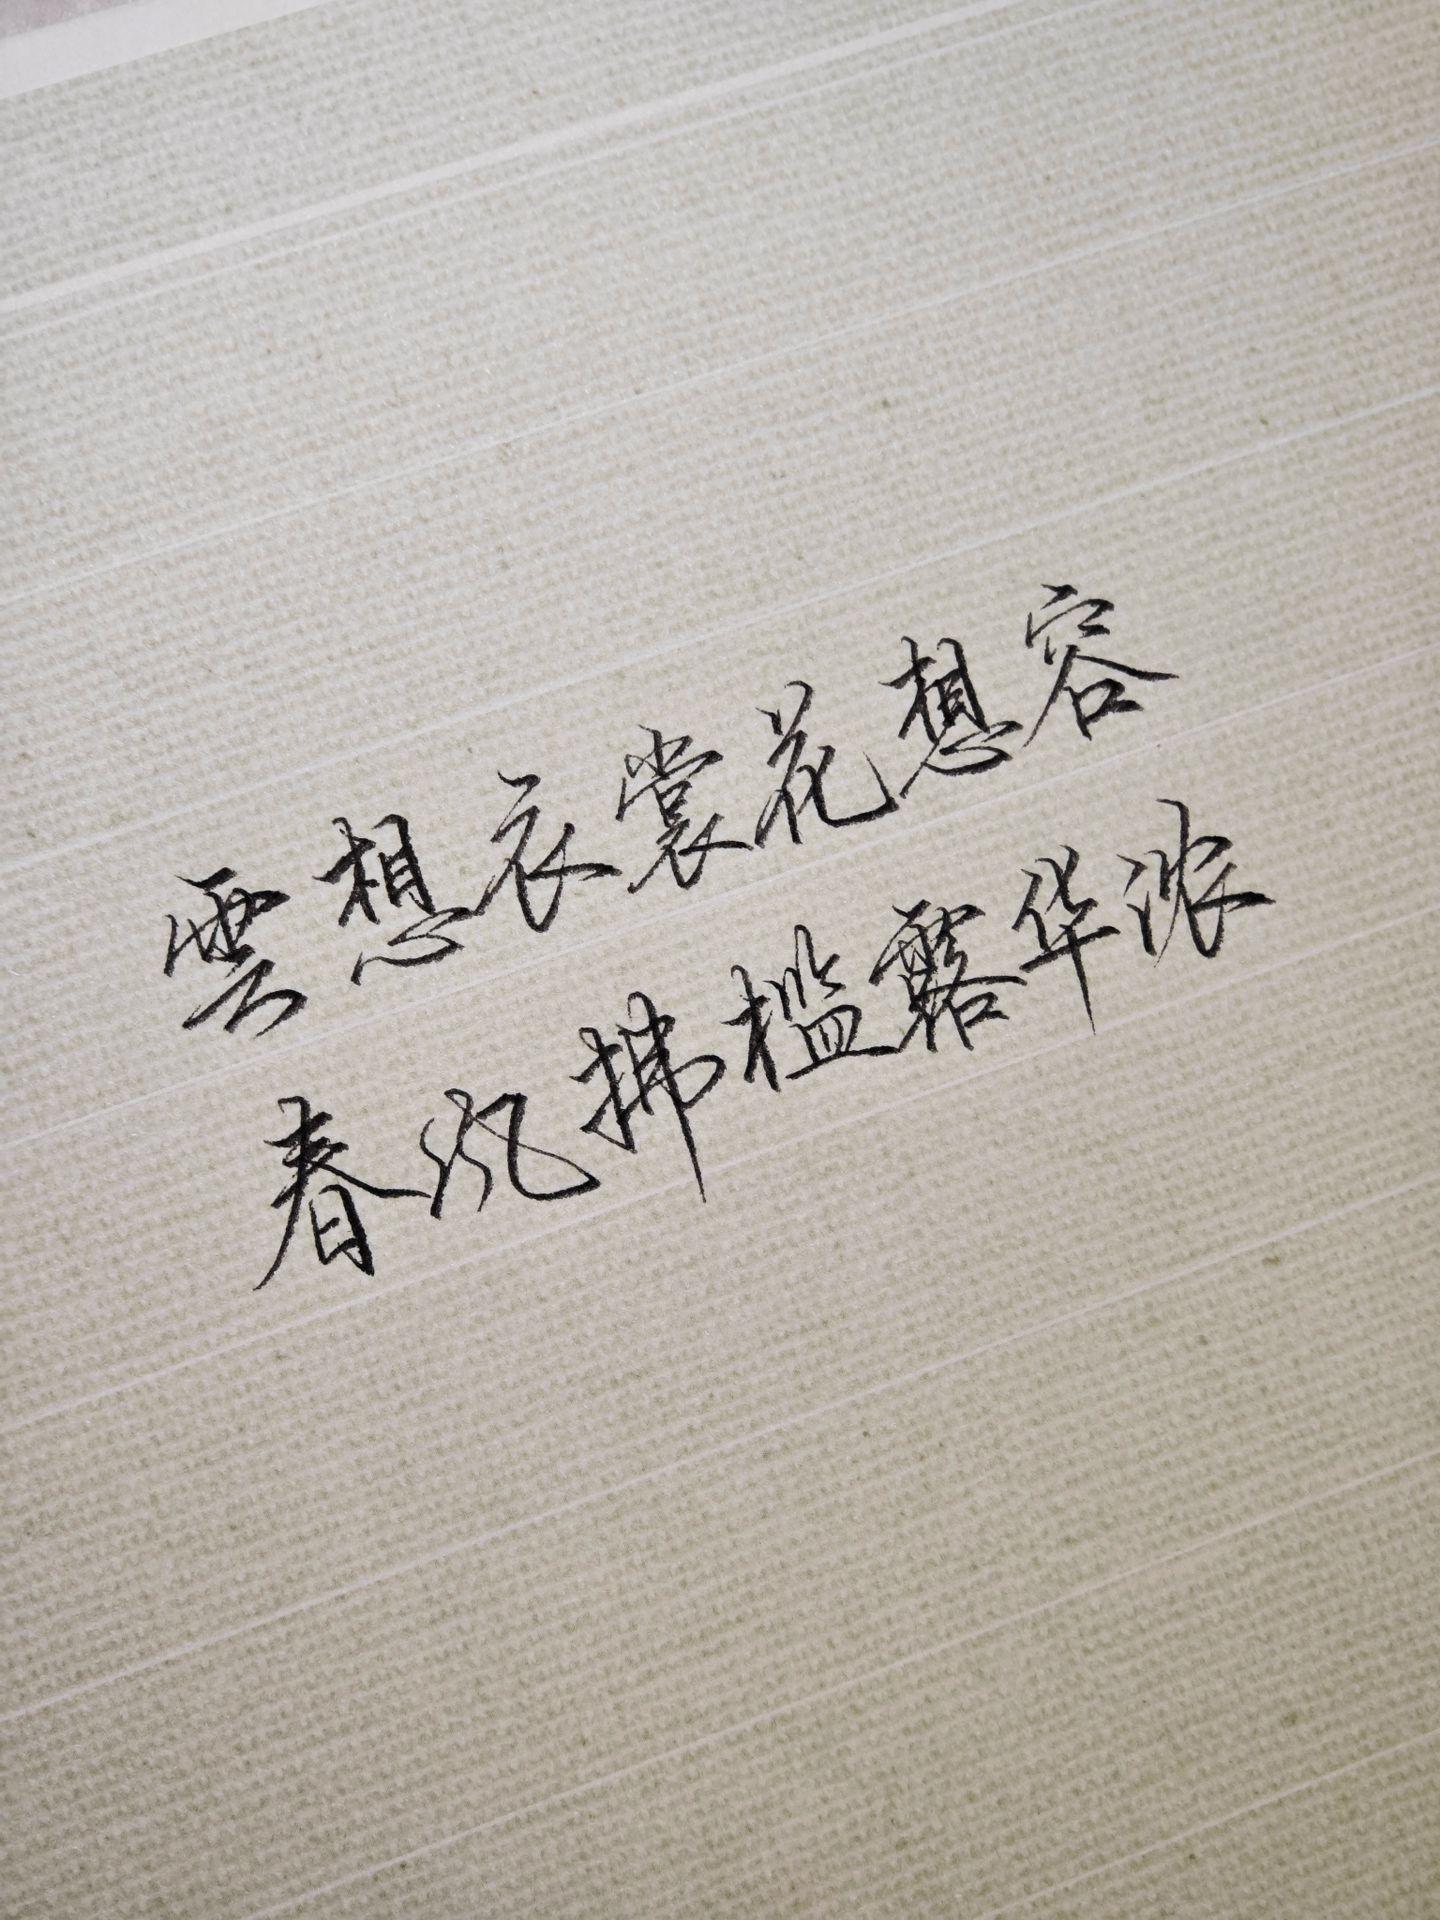 雲想衣裳花想容
春风拂槛露华浓